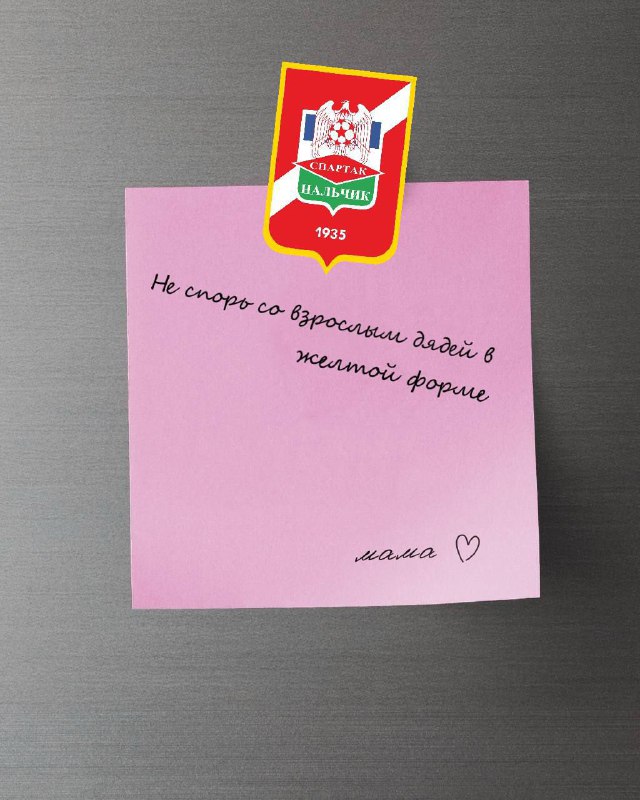 СПАРТАК
НАЛЬЧИК
1935
Не спорь со взрослым дядей в
желтой форме
мама ♡